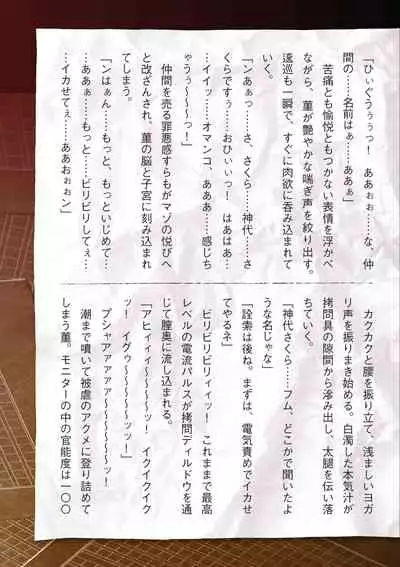 「ひぃぐうぅぅっ！　ああぉぉ……な、仲
間の……名前はぁ……あああぁ」
　苦痛とも愉悦ともつかない表情を浮かべ
ながら、菫が艶やかな喘ぎ声を絞り出す。
逡巡も一瞬で、すぐに肉欲に呑み込まれて
いく。
「ンあぁっ……さ、さくら……神代……さ
くらですぅ……おひぃぃっ！　はあはあ…
…イイッ……オマンコ、あああ……感じち
ゃうぅ～～～っ！」
　仲間を売る罪悪感すらもがマゾの悦びへ
と改ざんされ、菫の脳と子宮に刻み込まれ
てしまう。
「ンはぁん……もっと、もっといじめて…
…あああぁ……もっと……ビリビリしてぇ…
…イカせてぇ……ああおぉぉン」
　カクカクと腰を振り立て、浅ましいヨガ
リ声を振りまき始める。白濁した本気汁が
拷問具の隙間から滲み出し、太腿を伝い落
ちていく。
「神代さくら……フム、どこかで聞いたよ
うな名じゃな」
「詮索は後ね。まずは、電気責めでイカせ
てやるネ」
　ビリビリビリィィッ！　これまでで最高
レベルの電流パルスが拷問ディルドウを通
じて膣奥に流し込まれる。
「アヒィィィ～～～～ッ！　イクイクイク
ッ！　イグゥ～～～～～ッッ～！」
　プシャアァァァァ～～～～～～～ッ！
　潮まで噴いて被虐のアクメに登り詰めて
しまう菫。モニターの中の官能度は一〇〇